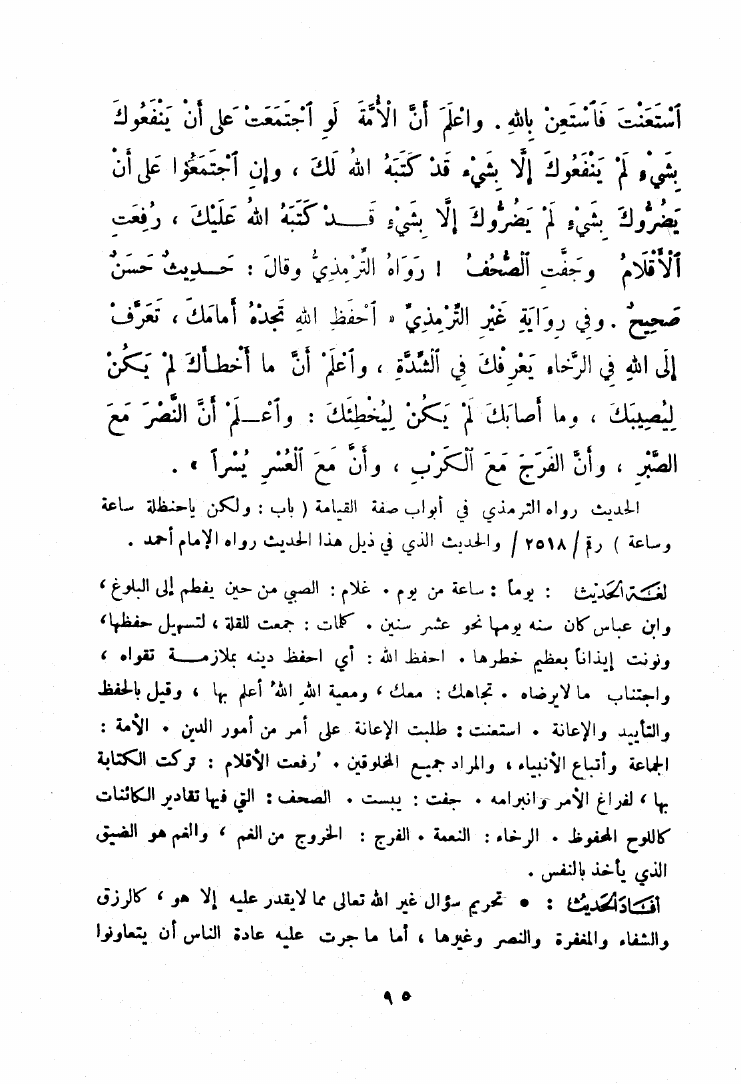 ٱسْتَعَنْتَ فَٱسْتَعِنْ بِاللهِ. واعْلَمَ أَنَّ الْأُمَّةَ لَوِ ٱجْتَمَعَتْ عَلى أَنْ يَنْفَعُوكَ
بِشَيْءٍ لَمْ يَنْفَعُوكَ إلَّا بِشَيْءٍ قَدْ كَتَبَهُ اللهُ لَكَ ، وإنِ ٱجْتَمَعُوا عَلى أَنْ
يَضُرُّوكَ بِشَيْءٍ لَمْ يَضُرُّوكَ إلَّا بِشَيْءٍ قَـدْ كَتَبَهُ اللهُ عَلَيْكَ ، رُفِعَتِ
ٱلْأَقْلَامُ وَجَفَّتِ ٱلصُّحُفُ ! رَوَاهُ التِّرْمِذِيُّ وقالَ : حَـدِيثٌ حَسَنٌ
صَحِيحٌ . وفي رِوَايَةِ غَيْرِ التِّرْمِذِيِّ « ٱحْفَظِ اللهَ تَجِدْهُ أَمامَكَ ، تَعَرَّفْ
إلَى اللهِ فِي الرَّخاءِ يَعْرِفْكَ فِي ٱلشِّدَّةِ ، وٱعْلَمْ أَنَّ ما أَخْطأَكَ لَمْ يَكُنْ
لِيُصِيبَكَ ، وما أَصابَكَ لَمْ يَكُنْ لِيُخْطِئَكَ : وٱعْـلَمْ أَنَّ النَّصْرَ مَعَ
الصَّبْرِ ، وأَنَّ الفَرَجَ مَعَ ٱلْكَرْبِ ، وأَنَّ مَعَ ٱلْعُسْرِ يُسْراً » .
الحديث رواه الترمذي في أبواب صفة القيامة ( باب : ولكن ياحنظلة ساعة
وساعة ) رقم /٢٥١٨/ والحديث الذي في ذيل هذا الحديث رواه الإمام أحمد .
لغـة الحديث : يوماً : ساعة من يوم . غلام : الصبي من حين يفطم إلى البلوغ ،
وابن عباس كان سنه يومها نحو عشر سنين . كلمات : جمعت للقلة ، لتسهيل حفظها ،
ونونت إيذاناً بعظيم خطرها . احفظ الله : أي احفظ دينه بملازمـة تقواه ،
واجتناب ما لايرضاه . تجاهك : معك ، ومعية اللهِ اللهُ أعلم بها ، وقيل بالحفظ
والتأييد والإعانة . استعنت : طلبت الإعانة على أمر من أمور الدين . الأمة :
الجماعة وأتباع الأنبياء ، والمراد جميع المخلوقين . رفعت الأقلام : تركت الكتابة
بها ، لفراغ الأمر وانبرامه . جفت : يبست . الصحف : التي فيها تقادير الكائنات
كاللوح المحفوظ . الرخاء : النعمة . الفرج : الخروج من الغم ، والغم هو الضيق
الذي يأخذ بالنفس .
أفـادَ الحديث : • تحريم سؤال غير الله تعالى مما لايقدر عليه إلا هو ، كالرزق
والشفاء والمغفرة والنصر وغيرها ، أما ماجرت عليه عادة الناس أن يتعاونوا
٩٥